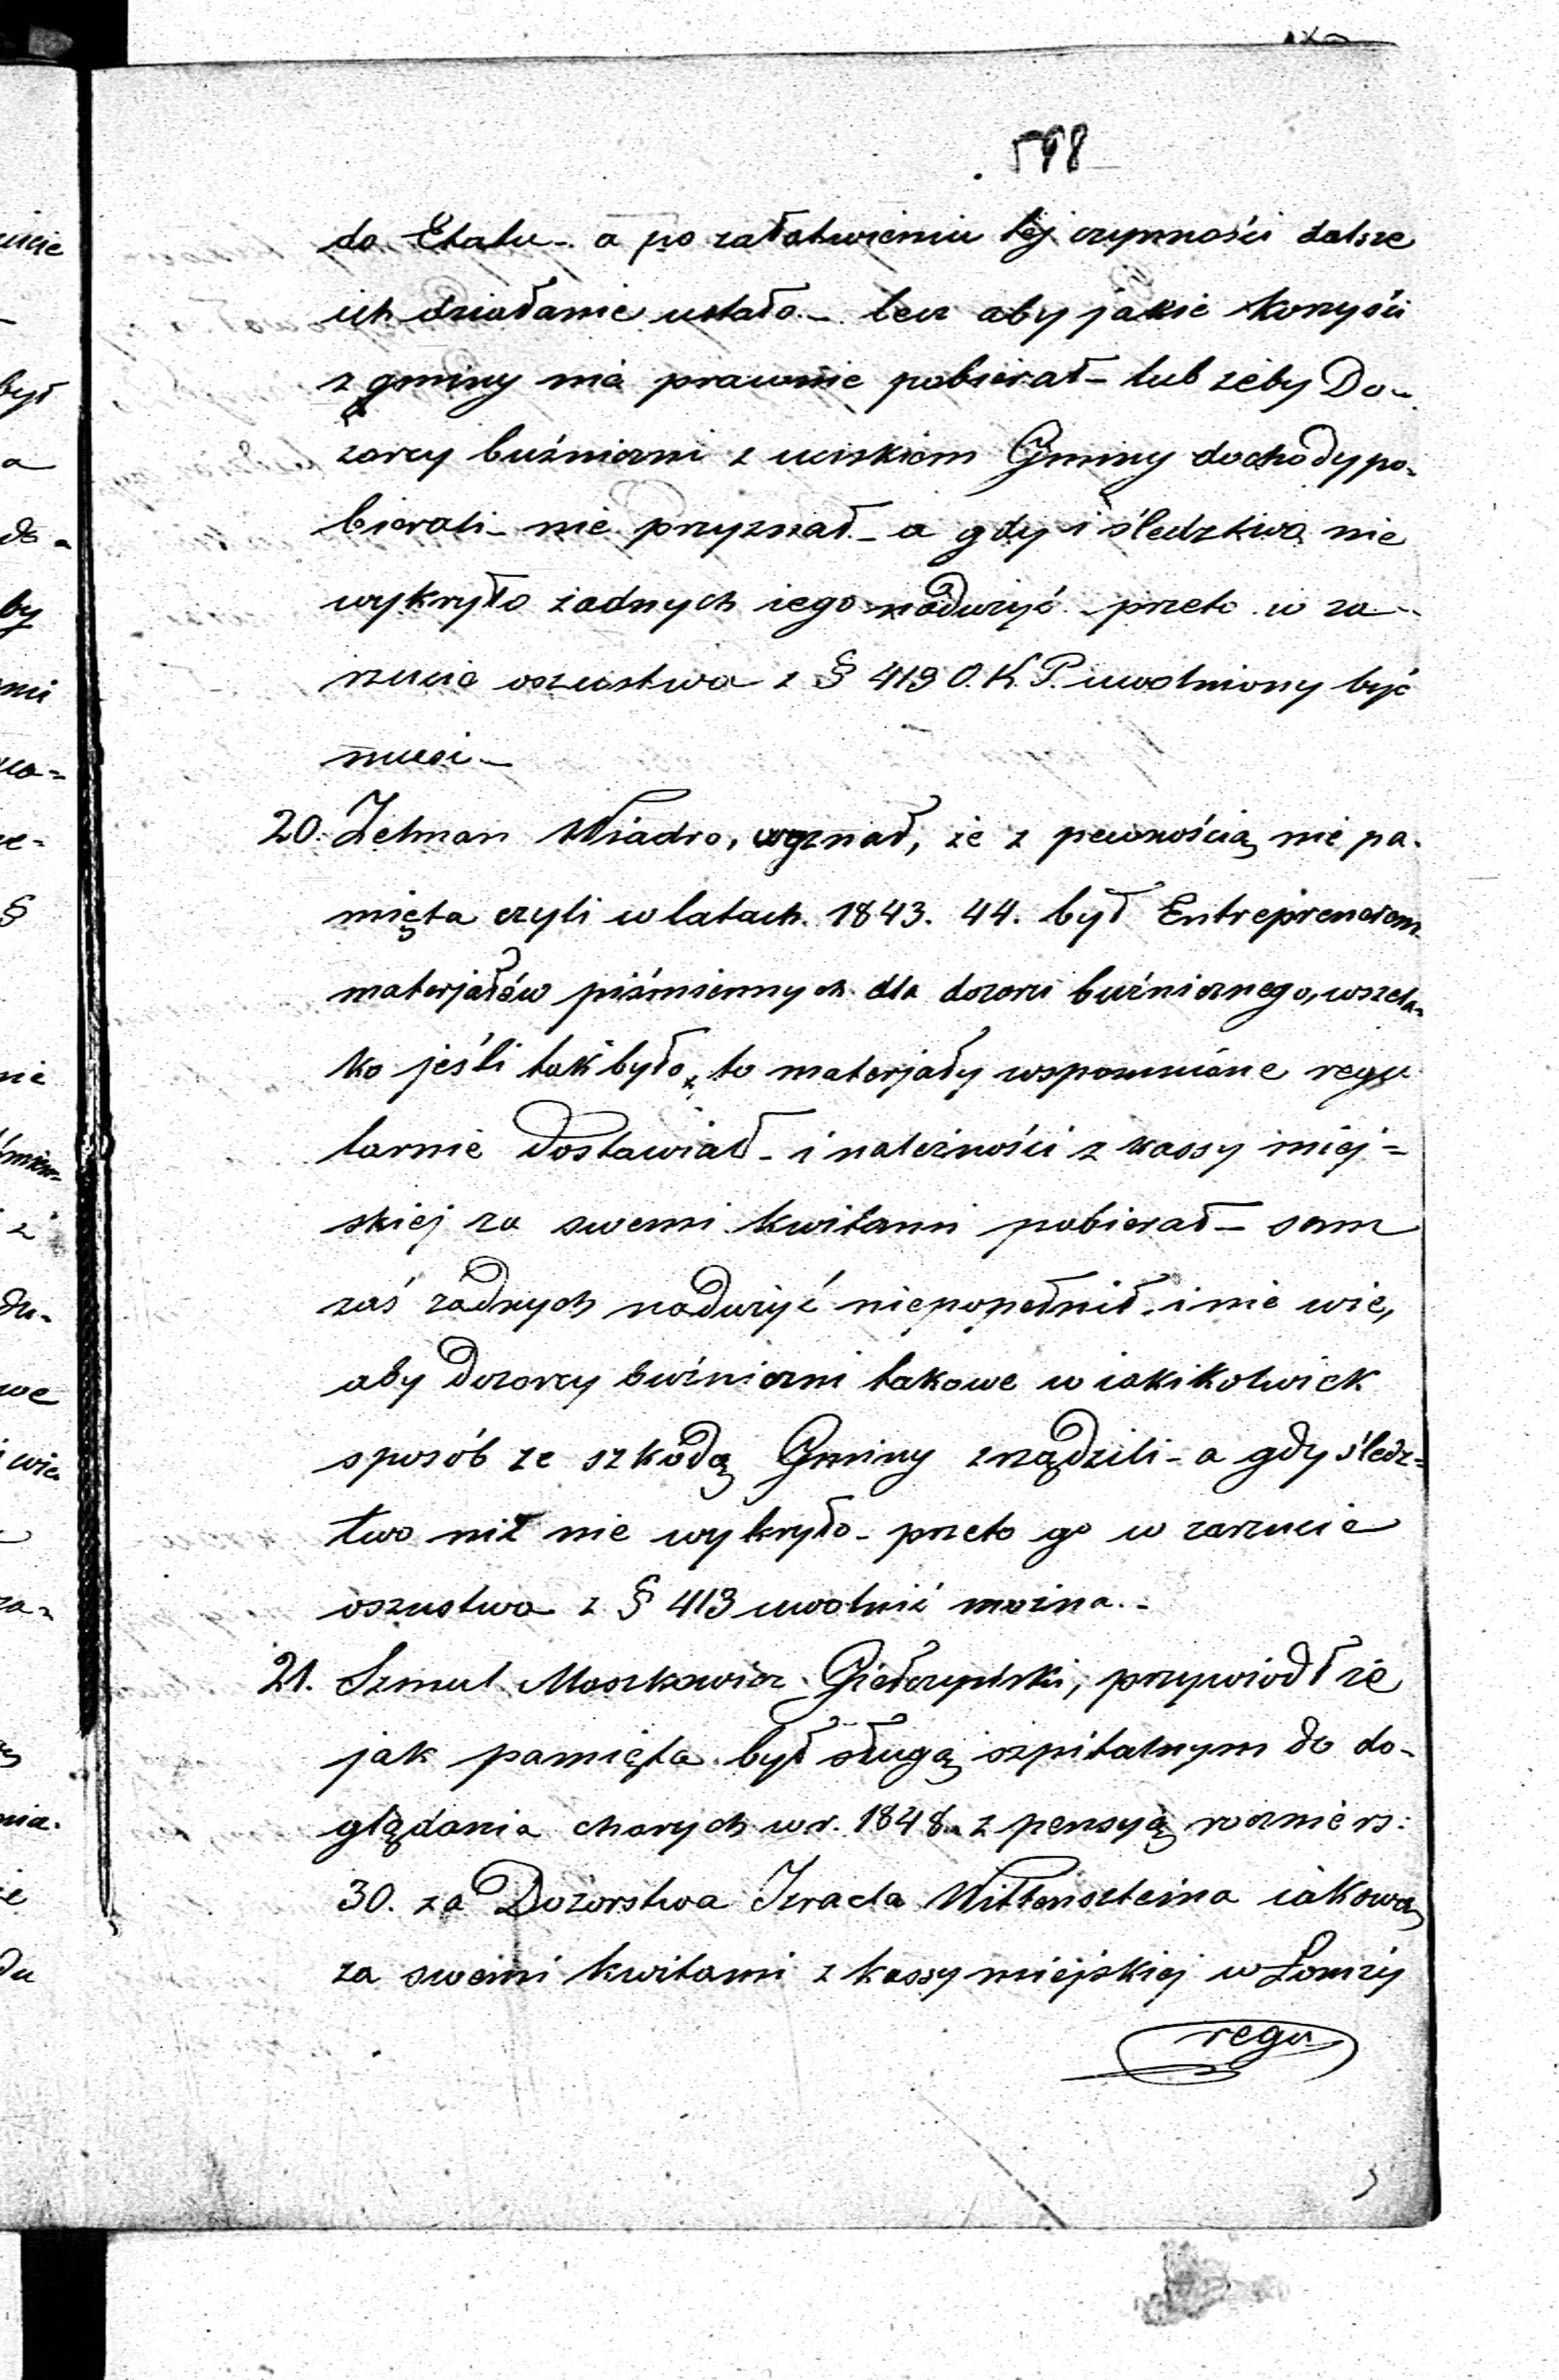 598
do Etatu - a po załatwieniu tej czynności dalsze
ich działanie ustało - lecz aby jakie korzyści
z gminy nie prawnie pobierał - lub żeby Do-
zorcy buźniczni z uciskiem Gminy dochody po-
bierali - nie przyznał - a gdy i śledztwo nie
wykryło żadnych iego nadużyć - przeto w za-
rzucie oszustwa z § 413 O. K. P. uwolniony być
musi -
20. Zelman Wiadro, wyznał, że z pewnością nie pa-
mięta czyli w latach 1843. 44. był Entreprenerem
materjałów piśmiennych dla dozoru buźnicznego, wszela-
ko jeśli tak było, to materjały wspomnióne regu
larnie dostawiał - i należności z kassy miej=
skiej za swemi kwitami pobierał - sam
zaś żadnych nadużyć niepopełnił - i nie wie,
aby Dozorcy buźniczni takowe w iakikolwiek
sposób ze szkodą Gminy zrządzili - a gdy śledz=
two nic nie wykryło - przeto go w zarzucie
oszustwa z § 413 uwolnić można. -
21. Szmul Moszkowicz Giełczyński, przywiodł że
jak pamięta był sługą szpitalnym do do-
glądania chorych w r. 1848. z pensyą rocznie rs:
30. za Dozorstwa Izraela Wittenszteina iakową
za swemi kwitami z kassy miejskiej w Łomży
regu